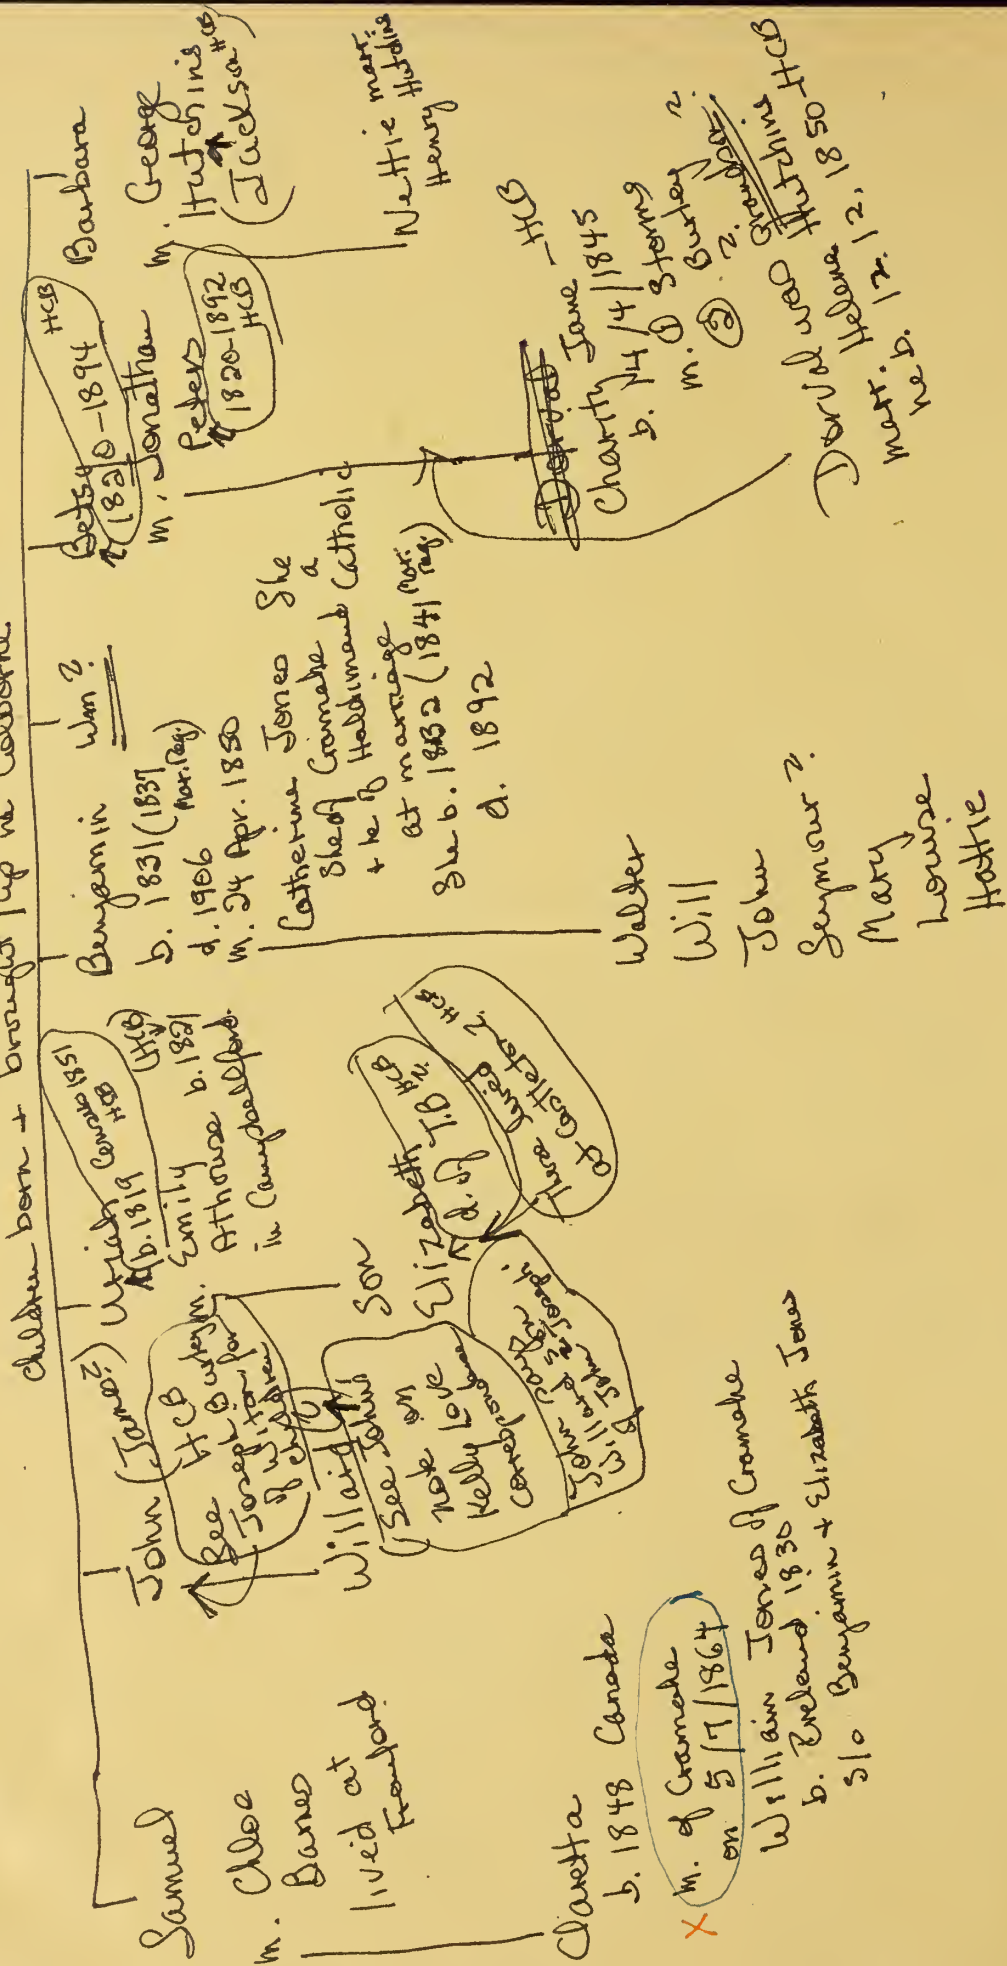 children born + brought up in Colborne.
Samuel
m. Chloe
Barnes
lived at
Claretta
b. 1848 Canada
X m. of Cramahe
on 5/7/1864
William Jones of Cramahe
b. Ireland 1830
s/o Benjamin + Elizabeth Jones
John (James?)
HCB
See
Joseph
for
of children
Willard
(See John's
note on
Kelly Love
correspondence
John
Willard
John
Uriah
b. 1819 Census 1851
HCB
m. Emily (HCB)
Athouse b. 1821
in Campbellford.
Son
Elizabeth
d. of T.B.? HCB
These lived
at Castleton? HCB
Benjamin
b. 1831 (1837
Mar. Reg.)
d. 1906
m. 24 Apr. 1850
Catherine Jones She
She of Cramahe a
+ he of Haldimand Catholic
at marriage
She b. 1832 (1841 Mar. Reg.)
d. 1892
Walter
Will
John
Seymour?
Mary
Louise
Hattie
Wm?
Betsy
1820-1894 HCB
m. Jonathan
Peters
1820-1892
HCB
Dorval
Charity Jane -HCB
b. 14/4/1845
m. ① Storms
② ? Burley?
Dorval was grandpar.
marr. Helena Hutchins
he b. 12.12.1850-HCB
Barbara
m. George
Hutchins
(Jackson HCB)
Nettie marr:
Henry Hutchins